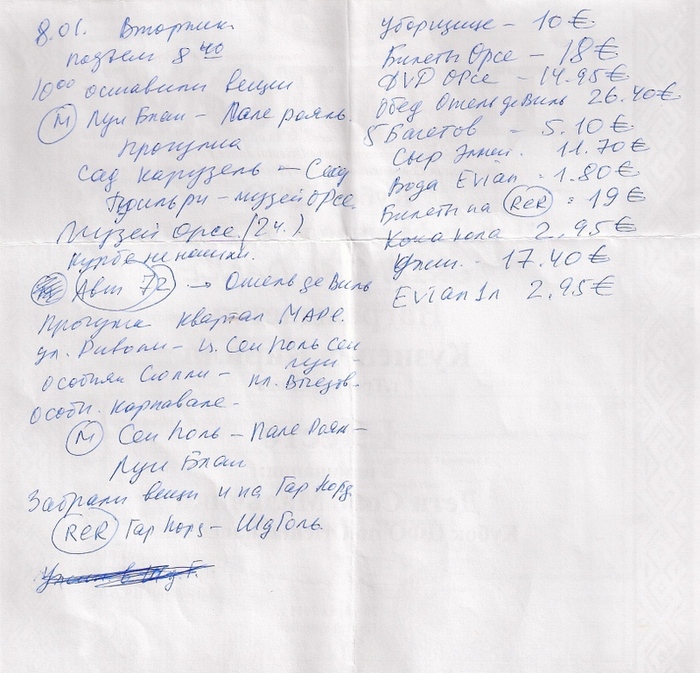 8.01. Вторник
подъем 8 40
10 00 оставили вещи
М Луи Блан – Пале рояль.
Прогулка
Сад Карузель – Сад
Тюильри – музей Орсе.
Музей Орсе. (2ч.)
Авт 72 → Отель де Виль
Прогулка квартал МАРе.
ул. Риволи – ц. Сен Поль Сен Луи –
особняк Сюлли – пл. Вогезов –
особн. Карнавале –
М Сен Поль – Пале Роял –
Луи Блан
Забрали вещи и на Гар Норд
RER Гар Норд – ШдГоль
Ужин в ШдГ.
уборщице – 10 €
Билеты Орсе – 18 €
DVD Орсе – 14.95 €
Обед Отель де Виль 26.40 €
5 Багетов – 5.10 €
Сыр 11.70 €
Вода Evian = 1.80 €
Билеты на RER = 19 €
Кока кола 2.95 €
Ужин. – 17.40 €
Evian 1л 2.95 €